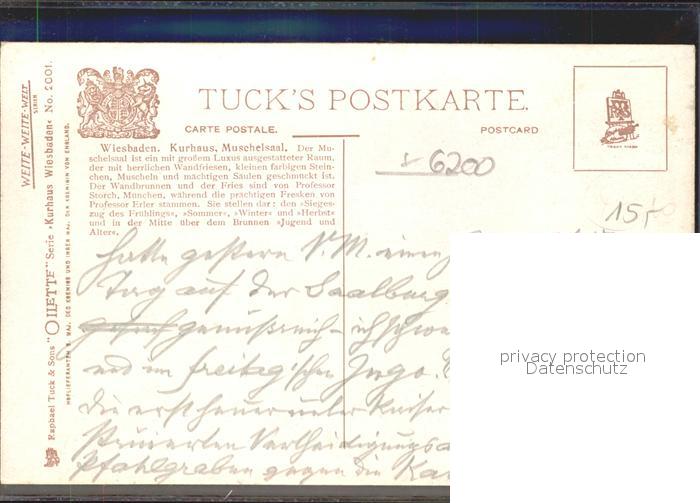 TUCK'S POSTKARTE.
CARTE POSTALE.
POSTCARD
TRADE MARK
WEITE-WEITE-WELT
SERIEN
Raphael Tuck & Sons' "OILETTE" Serie »Kurhaus Wiesbaden« No. 2001.
HOFLIEFERANTEN S. MAJ. DES KOENIGS UND IHRER MAJ. DER KOENIGIN VON ENGLAND.
Wiesbaden. Kurhaus, Muschelsaal. Der Mu-
schelsaal ist ein mit großem Luxus ausgestatteter Raum,
der mit herrlichen Wandfriesen, kleinen farbigen Stein-
chen, Muscheln und mächtigen Säulen geschmückt ist.
Der Wandbrunnen und der Fries sind von Professor
Storch, München, während die prächtigen Fresken von
Professor Erler stammen. Sie stellen dar: den »Sieges-
zug des Frühlings«, »Sommer«, »Winter« und »Herbst«
und in der Mitte über dem Brunnen »Jugend und
Alter«.
6200
15,-
Hatte gestern N. M. einen
Tag auf der Saalburg
genußreich – ich
und im
die
Vertheidigungs
Pfahlgraben gegen die
privacy protection
Datenschutz